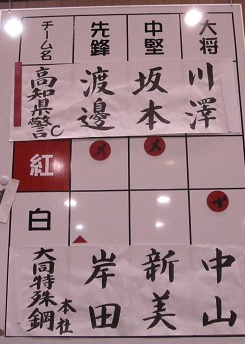 チーム名
先鋒
中堅
大将
高知県警C
渡邊
坂本
川澤
紅
白
大同特殊鋼
本社
岸田
新美
中山